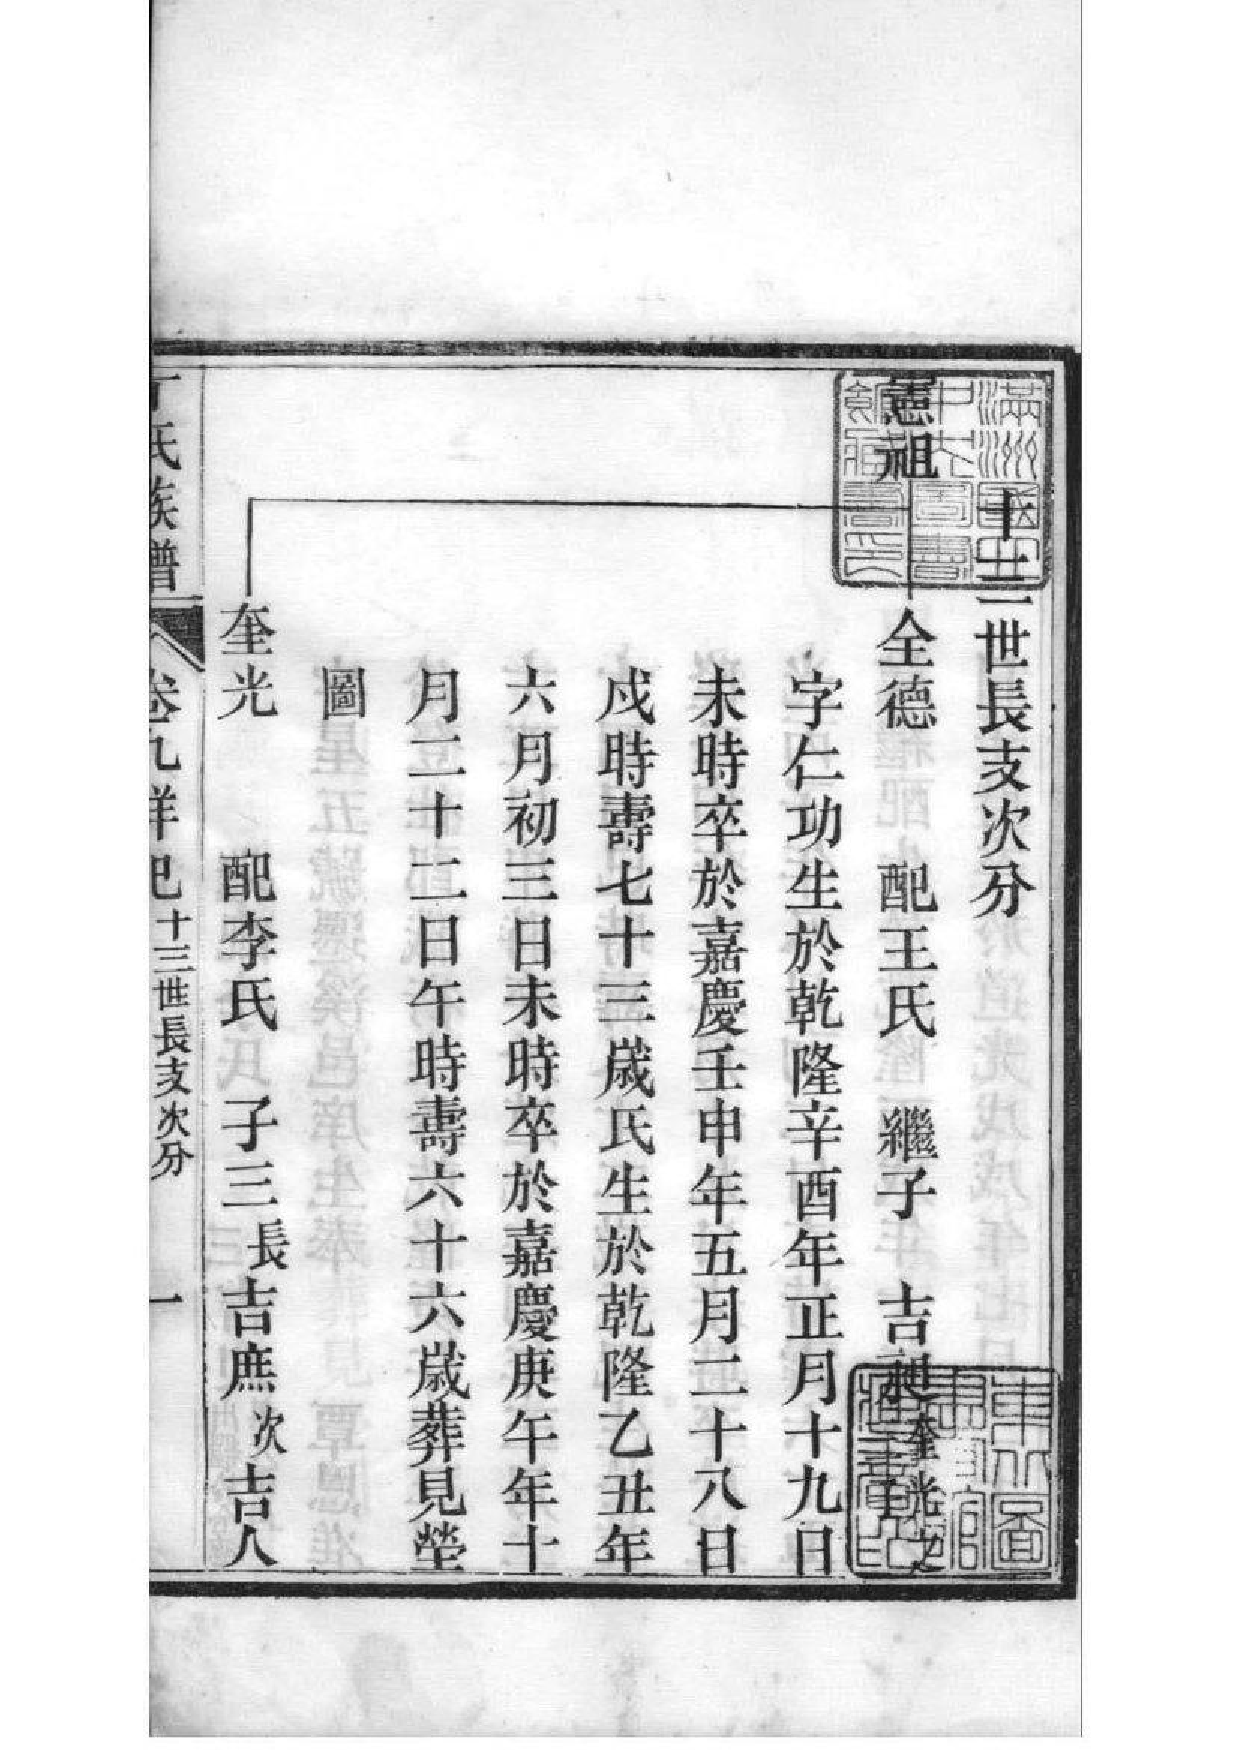 十三世長支次分
憲祖
全德 配王氏 繼子 吉昶 奎光之
字仁功生於乾隆辛酉年正月十九日
未時卒於嘉慶壬申年五月二十八日
戌時壽七十三歲氏生於乾隆乙丑年
六月初三日未時卒於嘉慶庚午年十
月二十二日午時壽六十六歲葬見塋
圖
奎光 配李氏 子三 長吉庶 次吉人
氏族譜 卷九詳 十三世長支次分 一